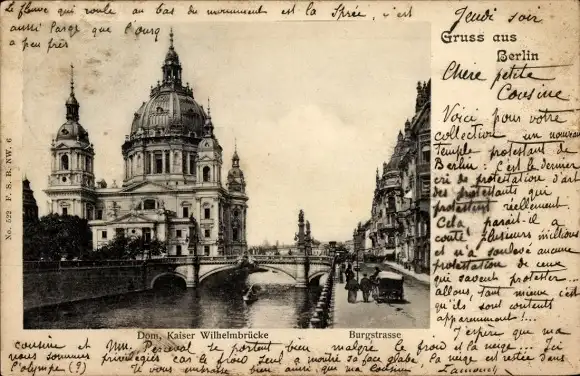 Le fleuve qui roule au bas du monument est la Sprée, c'est
aussi large que l'Ourq
a peu près
Jeudi soir
Gruss aus
Berlin
Chère petite
Cousine
Voici pour votre
collection un nouveau
temple protestant de
Berlin : C'est le dernier
cri de protestation d'art
des protestants qui
protestent réellement.
Cela, paraît-il a
couté plusieurs millions
et n'a soulevé aucune
protestation de ceux
qui savent protester
allons, tant mieux c'est
qu'ils sont contents
apparemment !...
J'espère que ma
No. 522 F. S. B. NW. 6
Dom, Kaiser Wilhelmbrücke
Burgstrasse
cousine et Mme Perceval se portent bien malgré le froid et la neige... Ici
nous sommes privilégiés car le froid seul a montré sa face glabe, la neige est restée dans
l'olympe (?) Je vous embrasse bien ainsi que ma cousine